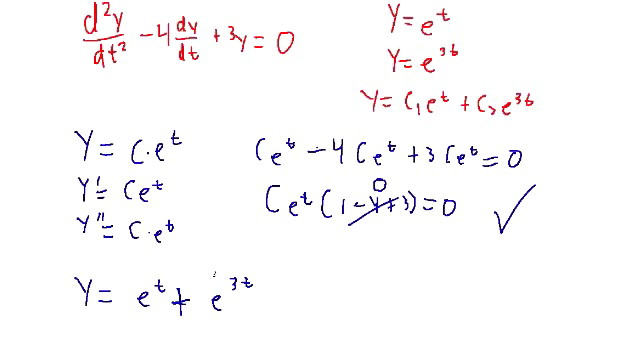 d²y/dt² - 4 dy/dt + 3y = 0
y = e^t
y = e^3t
y = c₁e^t + c₂e^3t
y = c·e^t
y' = ce^t
y'' = c·e^t
ce^t - 4ce^t + 3ce^t = 0
ce^t (1 - 4 + 3) = 0 ✓
0
y = e^t + e^3t